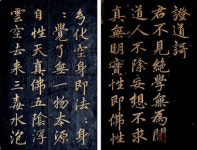 證道謌
君不見絕學無為閒
道人不除妄想不求
真無明實性即佛性
幻化空身即法〻身
〻覺了無一物本源
自性天真佛五陰浮
雲空去來三毒水泡